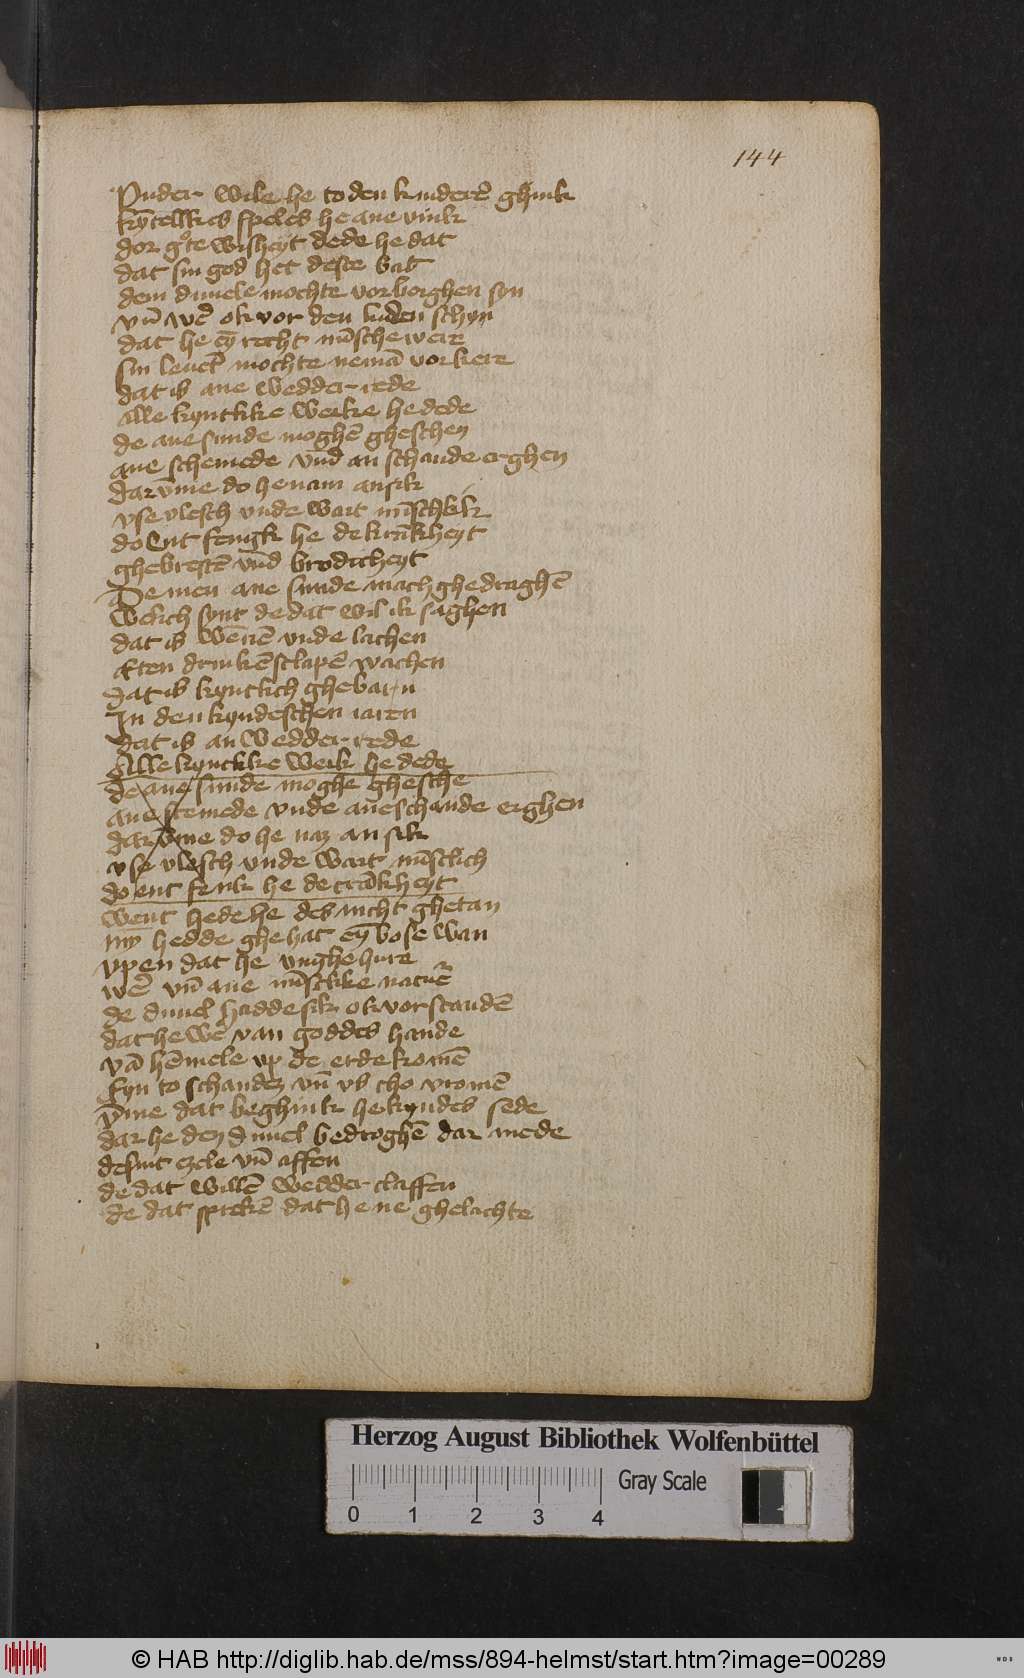 144
Vnder wile he to den kinderē ghink
kȳtellkes speles he ane vink
dor gͦte wisheyt dede he dat
dat sin god het deste bat
dem duuele mochte vorborghen syn
vn̄ wē ok vor den luden schyn
dat he eȳ recht mīsche were
sin leuēt mochte nemā vorkere
dat is ane wedder rede
Alle kyntlike werke he dede
de ane sunde moghē gheschen
ane schemede vnd an schande erghen
darv̄me do he nam an sik
vse vlesch vnde wart mīschlik
do Ent fengk he de krākheyt
ghebrestē vnd brodicheyt
De men ane sunde mach ghedraghē
Welich synt de dat wil ik saghen
dat is wenen vnde lachen
Eten drinkē sclapē wachen
dat is kyntlich ghebarn
In den kyndeschen iaren
dat is an wedder rede
Alle kyntlike werk he dede
de ane sunde moghe ghesche
ane scemede vnde ane schande erghen
darv̄me do he nam an sik
vse vlesch vnde wart mīsclich
do ent fenk he de crākheyt
went hedde he des nicht ghetan
my hedde ghehat eȳ bose wan
vpen dat he vnghehure
wē vn̄ ane mīsclike naturē
de duuel hadde sik ok vorstandē
dat he wē van goddes hande
vā hēmele vp de erde komē
Eyn to schandē vn̄ vs tho vromē
v̄me dat beghink he kyndes sede
dar he den duuel bedroghē dar mede
de sint ezele vn̄ affen
de dat willē wedder claffen
de dat sprekē dat he ne ghelachte
Herzog August Bibliothek Wolfenbüttel
Gray Scale
0 1 2 3 4
© HAB http://diglib.hab.de/mss/894-helmst/start.htm?image=00289